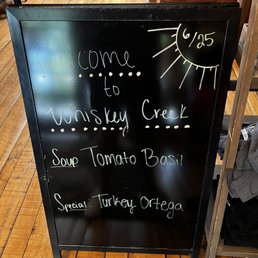 6/25
Welcome
to
Whiskey Creek
Soup Tomato Basil
Special: Turkey Ortega